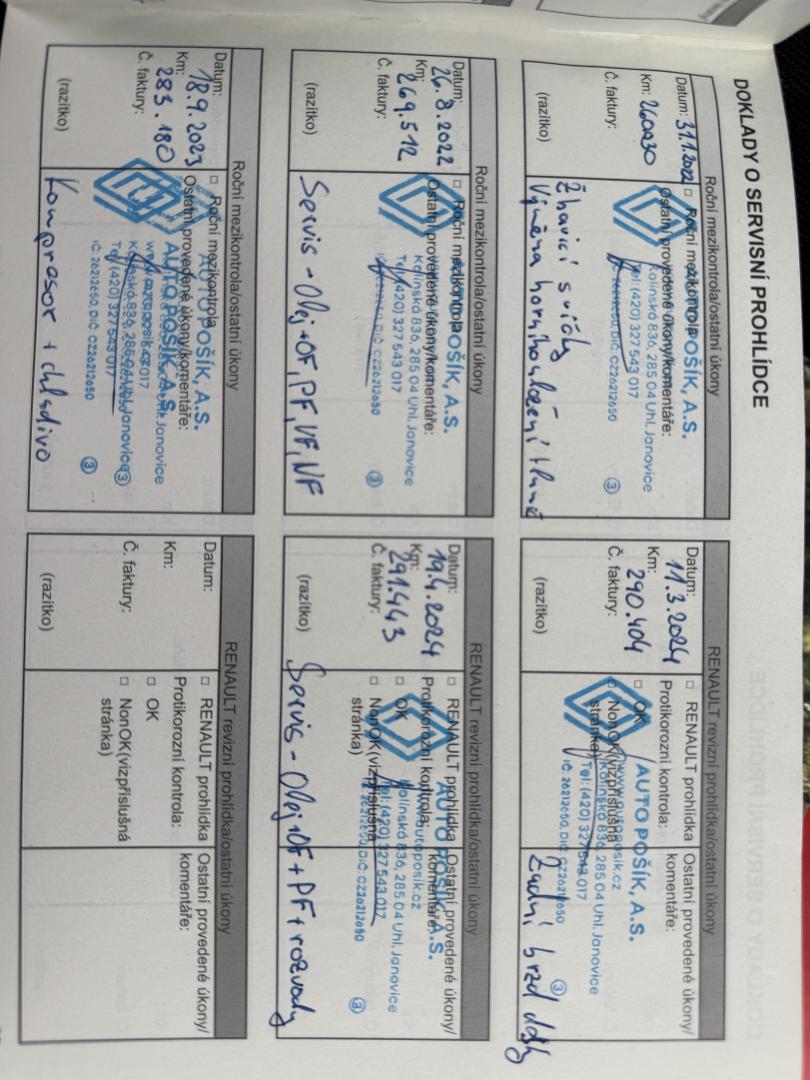 DOKLADY O SERVISNÍ PROHLÍDCE
Roční mezikontrola/ostatní úkony
Datum: 31.1.2022
Km: 260030
Č. faktury:
(razítko)
□ Roční mezikontrola
Ostatní provedené úkony/komentáře:
AUTO POŠÍK, A.S.
Kolínská 836, 285 04 Uhl. Janovice
Tel: (420) 327 543 017
IČ 26212650, DIČ CZ26212650
3
Žhavící svíčky
Výměna horního uložení
RENAULT revizní prohlídka/ostatní úkony
Datum: 11.3.2024
Km: 290.404
Č. faktury:
(razítko)
□ RENAULT prohlídka
Protikorozní kontrola:
□ OK
□ NonOK(vizpříslušná stránka)
Ostatní provedené úkony/
komentáře:
AUTO POŠÍK, A.S.
www.autoposik.cz
Kolínská 836, 285 04 Uhl. Janovice
Tel: (420) 327 543 017
IČ 26212650, DIČ CZ26212650
3
Zadní brzd
Roční mezikontrola/ostatní úkony
Datum: 26.8.2022
Km: 269.512
Č. faktury:
(razítko)
□ Roční mezikontrola
Ostatní provedené úkony/komentáře:
AUTO POŠÍK, A.S.
Kolínská 836, 285 04 Uhl. Janovice
Tel: (420) 327 543 017
IČ 26212650, DIČ CZ26212650
3
Servis - Olej+OF, PF, VF, NF
RENAULT revizní prohlídka/ostatní úkony
Datum: 19.4.2024
Km: 291.443
Č. faktury:
(razítko)
□ RENAULT prohlídka
Protikorozní kontrola:
□ OK
□ NonOK(vizpříslušná
stránka)
Ostatní provedené úkony/
komentáře:
AUTO POŠÍK, A.S.
www.autoposik.cz
Kolínská 836, 285 04 Uhl. Janovice
Tel: (420) 327 543 017
IČ 26212650, DIČ CZ26212650
3
Servis - Olej+OF + PF + rozvody
Roční mezikontrola/ostatní úkony
Datum: 18.9.2023
Km: 283.180
Č. faktury:
(razítko)
□ Roční mezikontrola
Ostatní provedené úkony/komentáře:
AUTO POŠÍK, A.S.
AUTO POŠÍK, A.S.
www.autoposik.cz
Kolínská 836, 285 04 Uhl. Janovice
Tel: (420) 327 543 017
IČ 26212650, DIČ CZ26212650
3
3
Kompresor + chladivo
RENAULT revizní prohlídka/ostatní úkony
Datum:
Km:
Č. faktury:
(razítko)
□ RENAULT prohlídka
Protikorozní kontrola:
□ OK
□ NonOK(vizpříslušná
stránka)
Ostatní provedené úkony/
komentáře: